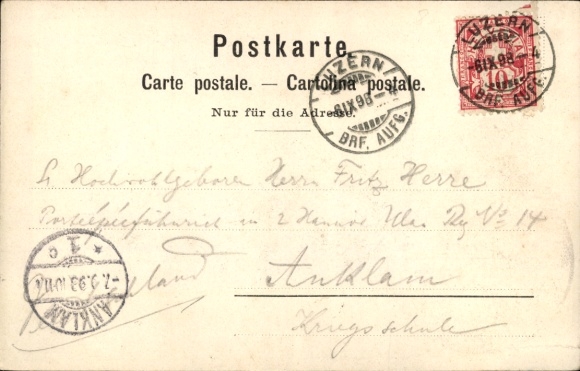 Postkarte.
Carte postale. — Cartolina postale.
Nur für die Adresse.
LUZERN
6 IX 98 – 4
BRF. AUFG.
LUZERN
6 IX 98 – 4
BRF. AUFG.
10
S Hochwohlgeboren Herrn Fritz Herre
Portepéefähnrich in 2 Hannov Ulan Rg No 14
Anklam
Kriegsschule
ANKLAM
7. 9. 98 10-11
* 1 c